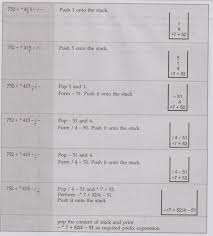 752 ÷ * 415 - / -
Push 1 onto the stack.
1
4
*7 + 52
752 ÷ * 415 - / -
Push 5 onto the stack.
5
1
4
*7 + 52
752 ÷ * 415 - / -
Pop 5 and 1.
Form – 51. Push it onto the stack
– 51
4
*7 + 52
752 ÷ * 415 - / -
Pop – 51 and 4.
Form / 4 – 51. Push it onto the stack.
/ 4 – 51
*7 + 52
752 ÷ * 415 - / -
Pop – 51 and 4.
Form / 4 – 51. Push it onto the stack.
/ 4 – 51
*7 + 52
752 ÷ * 415 - / -
Pop / 4 – 51 and * 7 + 52.
Push it onto the stack
pop the content of stack and print
as required prefix expression